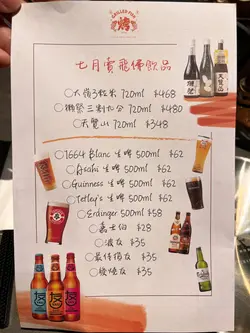 GRILLED PRO
烤
七月賣飛佛飲品
○大嶺3粒米 720ml $468
○獺祭 三割九分 720ml $480
○天鷲山 720ml $348
○1664 Blanc 生啤 500ml $62
○Asahi 生啤 500ml $62
○Guinness 生啤 500ml $62
○Tetley's 生啤 500ml $62
○Erdinger 500ml $58
○嘉士伯 $28
○波友 $35
○蕞佳損友 $35
○後燒友 $35